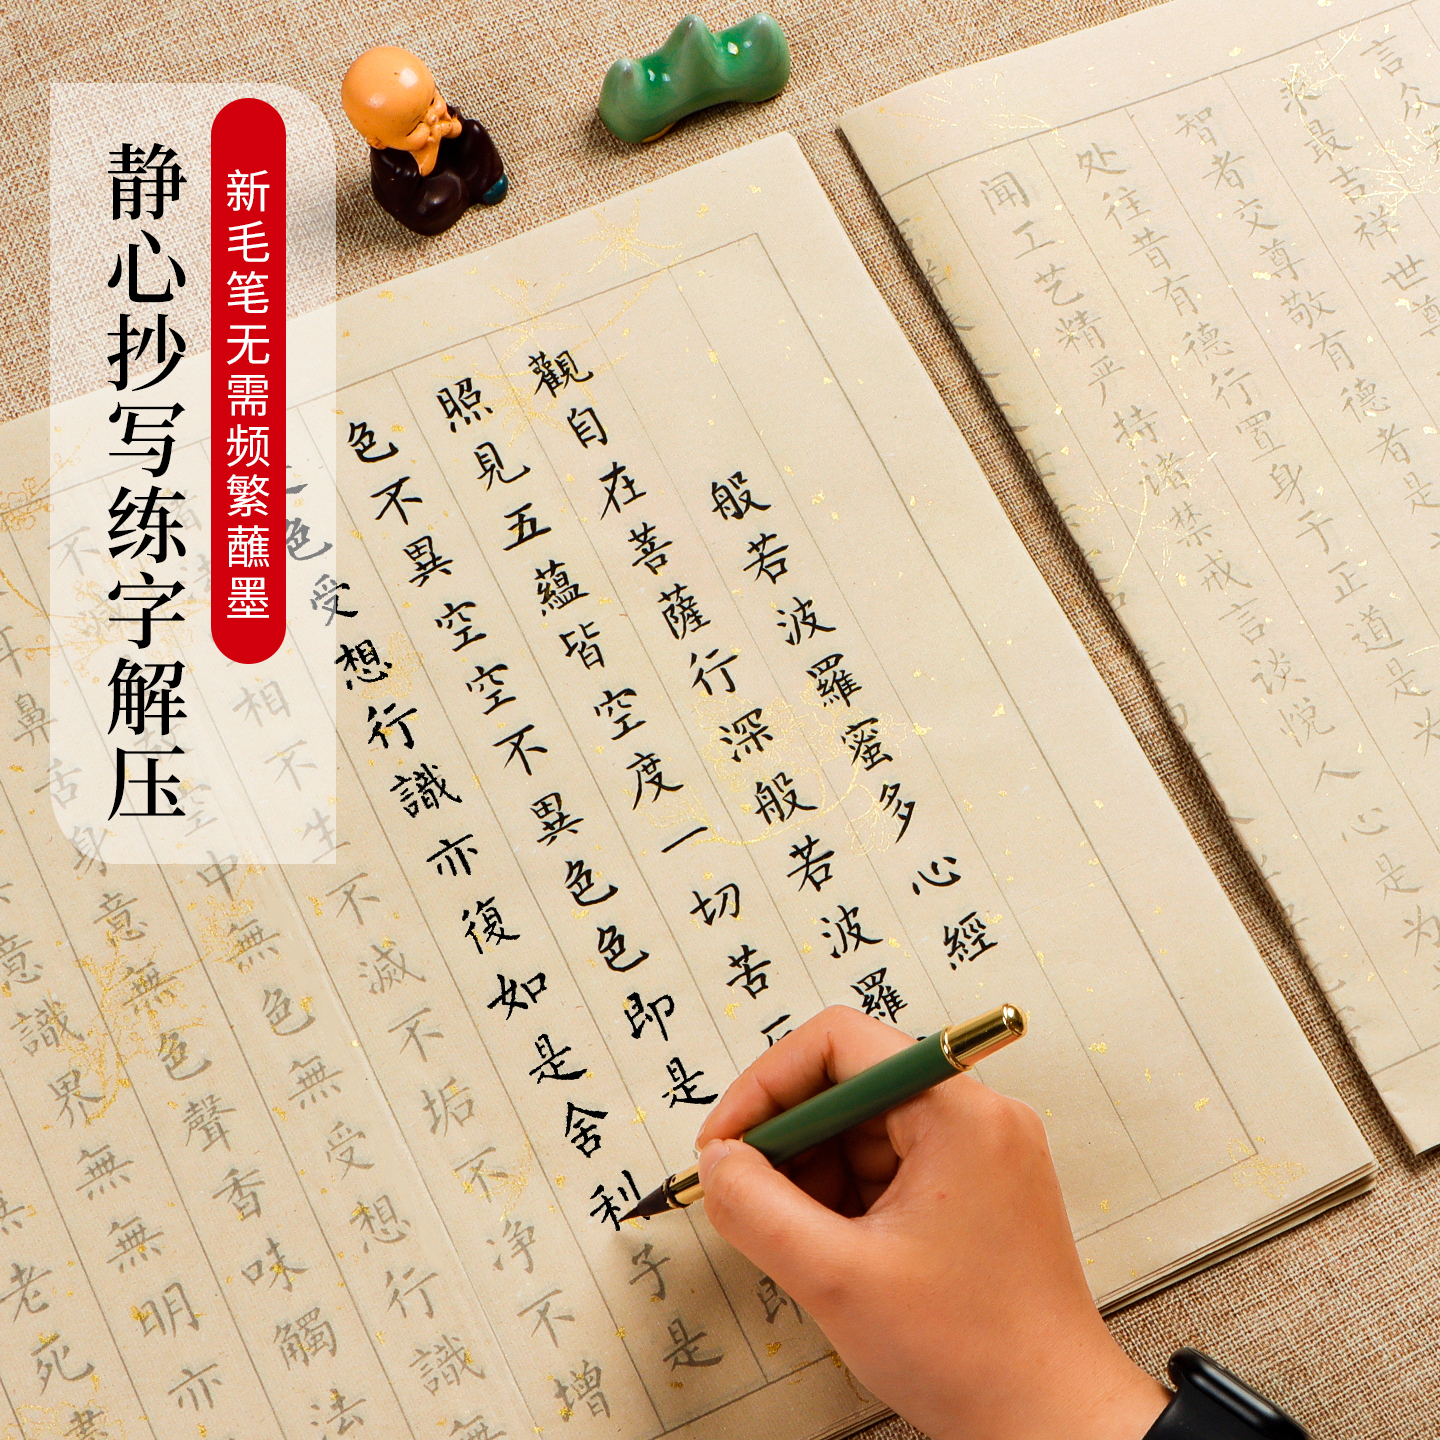 静心抄写练字解压
新毛笔无需频繁蘸墨
言众
最吉祥世尊
智者交尊敬有德者是
处往昔有德行置身于正道是为
闻工艺精严持诸禁戒言谈悦人心是为
般若波羅蜜多心經
觀自在菩薩行深般若波羅
照見五蘊皆空度一切苦
色不異空空不異色色即是
色受想行識亦復如是舍利子是
相不生不滅不垢不净不增
空中無色無受想行識無
耳鼻舌身意無色聲香味觸法
意識界無無明亦
無老死